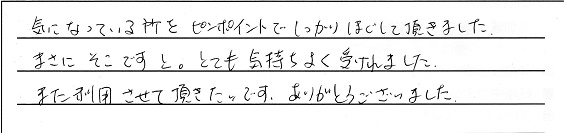 気になっている所をピンポイントでしっかりほぐして頂きました.
まさに そこですと。とても気持ちよく受けれました.
また利用させて頂きたいです. ありがとうございました.